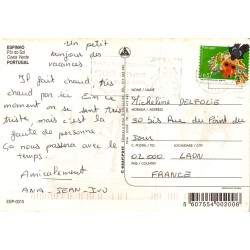 ESPINHO
Pôr do Sol
Costa Verde
PORTUGAL
Un petit
bonjour des
vacances
Il fait chaud très
chaud par ici En ce
moment on se sent très
triste, mais c'est la
faute de personne
Ça nous passera avec le
temps.
Amicalement
ANA - JEAN-
ESP-0015
NOME / NAME
Micheline DELFOLIE
MORADA / ADDRESS
30 bis Rue du Point du
Jour
02000 LAON
FRANCE
5 607554 002006